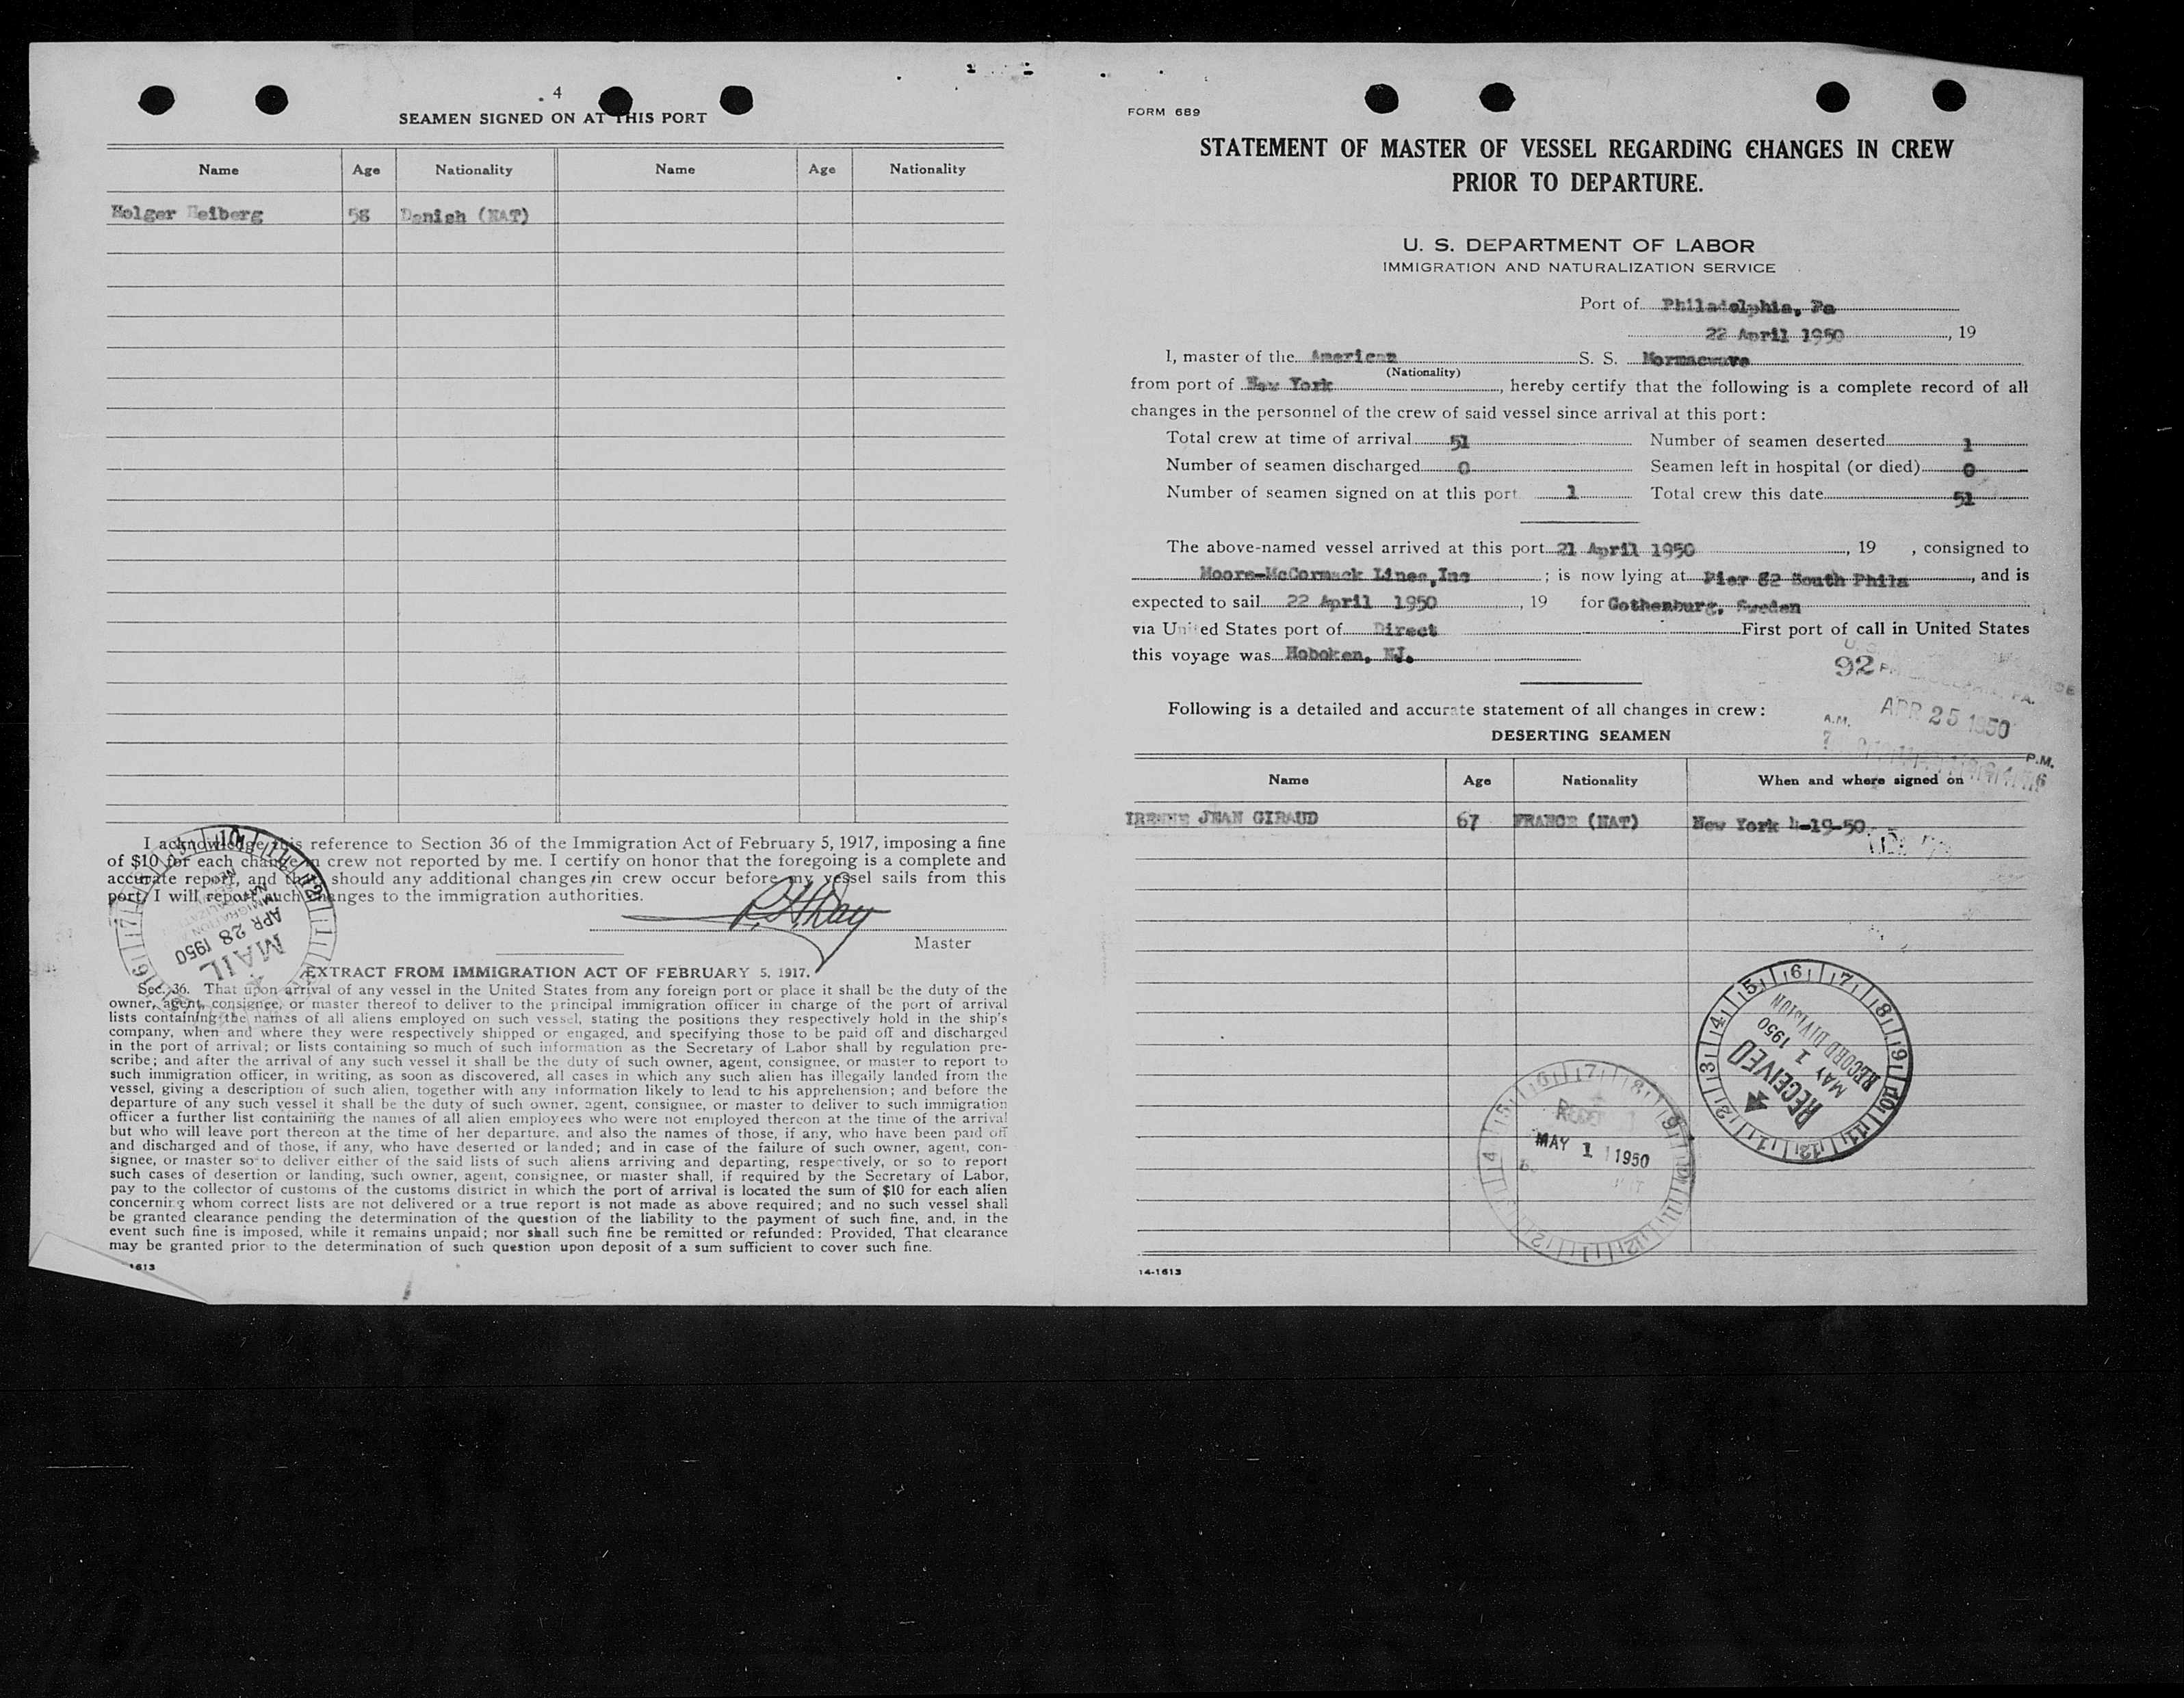 4
SEAMEN SIGNED ON AT THIS PORT
Name Age Nationality Name Age Nationality
Holger Heiberg 58 Danish (NAT)
I acknowledge this reference to Section 36 of the Immigration Act of February 5, 1917, imposing a fine
of $10 for each change in crew not reported by me. I certify on honor that the foregoing is a complete and
accurate report, and that should any additional changes in crew occur before my vessel sails from this
port, I will report such changes to the immigration authorities.
Master
MAIL
APR 28 1950
EXTRACT FROM IMMIGRATION ACT OF FEBRUARY 5, 1917.
Sec. 36. That upon arrival of any vessel in the United States from any foreign port or place it shall be the duty of the
owner, agent, consignee, or master thereof to deliver to the principal immigration officer in charge of the port of arrival
lists containing the names of all aliens employed on such vessel, stating the positions they respectively hold in the ship's
company, when and where they were respectively shipped or engaged, and specifying those to be paid off and discharged
in the port of arrival; or lists containing so much of such information as the Secretary of Labor shall by regulation pre-
scribe; and after the arrival of any such vessel it shall be the duty of such owner, agent, consignee, or master to report to
such immigration officer, in writing, as soon as discovered, all cases in which any such alien has illegally landed from the
vessel, giving a description of such alien, together with any information likely to lead to his apprehension; and before the
departure of any such vessel it shall be the duty of such owner, agent, consignee, or master to deliver to such immigration
officer a further list containing the names of all alien employees who were not employed thereon at the time of the arrival
but who will leave port thereon at the time of her departure, and also the names of those, if any, who have been paid off
and discharged and of those, if any, who have deserted or landed; and in case of the failure of such owner, agent, con-
signee, or master so to deliver either of the said lists of such aliens arriving and departing, respectively, or so to report
such cases of desertion or landing, such owner, agent, consignee, or master shall, if required by the Secretary of Labor,
pay to the collector of customs of the customs district in which the port of arrival is located the sum of $10 for each alien
concerning whom correct lists are not delivered or a true report is not made as above required; and no such vessel shall
be granted clearance pending the determination of the question of the liability to the payment of such fine, and, in the
event such fine is imposed, while it remains unpaid; nor shall such fine be remitted or refunded: Provided, That clearance
may be granted prior to the determination of such question upon deposit of a sum sufficient to cover such fine.
1613
FORM 689
STATEMENT OF MASTER OF VESSEL REGARDING CHANGES IN CREW
PRIOR TO DEPARTURE.
U. S. DEPARTMENT OF LABOR
IMMIGRATION AND NATURALIZATION SERVICE
Port of Philadelphia, Pa
22 April 1950, 19
I, master of the American S. S. Mormacwave
(Nationality)
from port of New York, hereby certify that the following is a complete record of all
changes in the personnel of the crew of said vessel since arrival at this port:
Total crew at time of arrival 51 Number of seamen deserted 1
Number of seamen discharged 0 Seamen left in hospital (or died) 0
Number of seamen signed on at this port 1 Total crew this date 51
The above-named vessel arrived at this port 21 April 1950, 19 , consigned to
Moore-McCormack Lines, Inc ; is now lying at Pier 82 South Phila, and is
expected to sail 22 April 1950, 19 for Gothenburg, Sweden
via United States port of Direct First port of call in United States
this voyage was Hoboken, NJ.
92
PHILADELPHIA, PA.
APR 25 1950
A.M. P.M.
Following is a detailed and accurate statement of all changes in crew:
DESERTING SEAMEN
Name Age Nationality When and where signed on
JEAN GIRAUD 67 FRANCE (NAT) New York 4-19-50
RECEIVED
MAY 1 1950
RECORD DIVISION
MAY 1 1950
14-1613